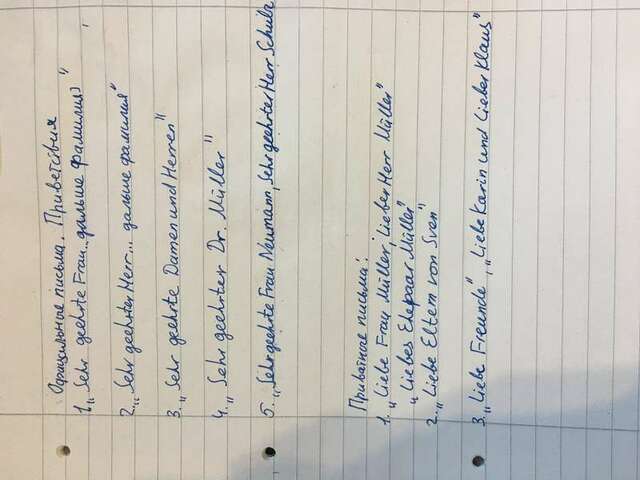 Официльные письма. Приветствия
1. „Sehr geehrte Frau...дальше фамилия"
2. „Sehr geehrter Herr... дальше фамилия"
3. „Sehr geehrte Damen und Herren"
4. „Sehr geehrter Dr. Müller"
5. „Sehr geehrte Frau Neumann, Sehr geehrter Herr Schulz
Приватные письма:
1. „Liebe Frau Müller, Lieber Herr Müller"
„Liebes Ehepaar Müller"
2. „Liebe Eltern von Sven"
3. „Liebe Freunde", „Liebe Karin und Lieber Klaus"